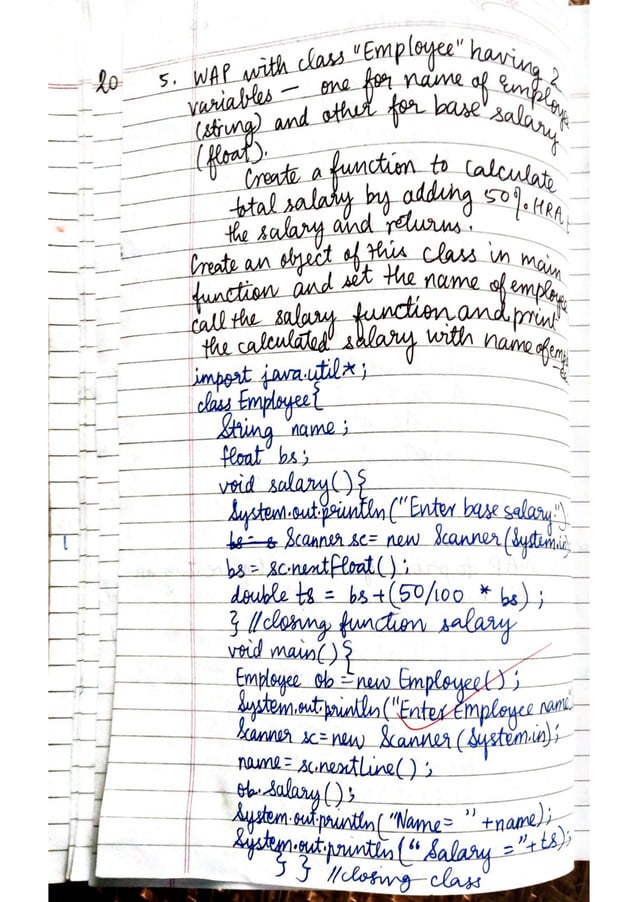 20 5. WAP with class "Employee" having 2
variables - one for name of employe
(string) and other for base salary
(float).
Create a function to calculate
total salary by adding 50% HRA
the salary and returns.
Create an object of this class in main
function and set the name of employe
call the salary function and print
the calculated salary with name of emp
import java.util*;
class Employee{
String name;
float bs;
void salary(){
System.out.println("Enter base salary")
Scanner sc= new Scanner(System.in)
bs= sc.nextFloat();
double ts = bs+(50/100 * bs);
} //closing function salary
void main(){
Employee ob =new Employee();
System.out.println("Enter Employee name"
Scanner sc=new Scanner(System.in);
name= sc.nextLine();
ob.salary();
System.out.println("Name= "+name);
System.out.println("Salary ="+ts);
} } //closing class